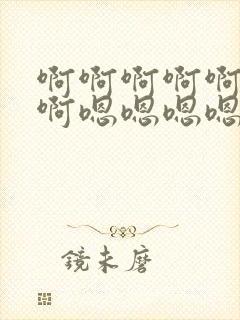 啊啊啊啊啊
啊嗯嗯嗯嗯
鏡未磨